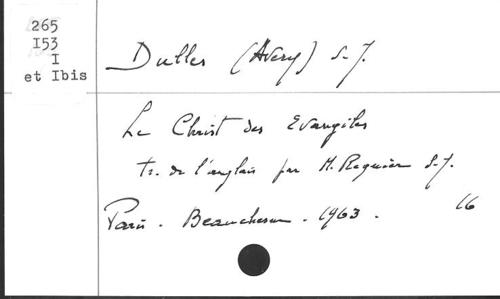 265
I53
I
et Ibis
Dulles (Avery) S.J.
Le Christ des Evangiles
Tr. de l'anglais par H. Requier S.J.
Paris. Beauchesne. 1963. 16